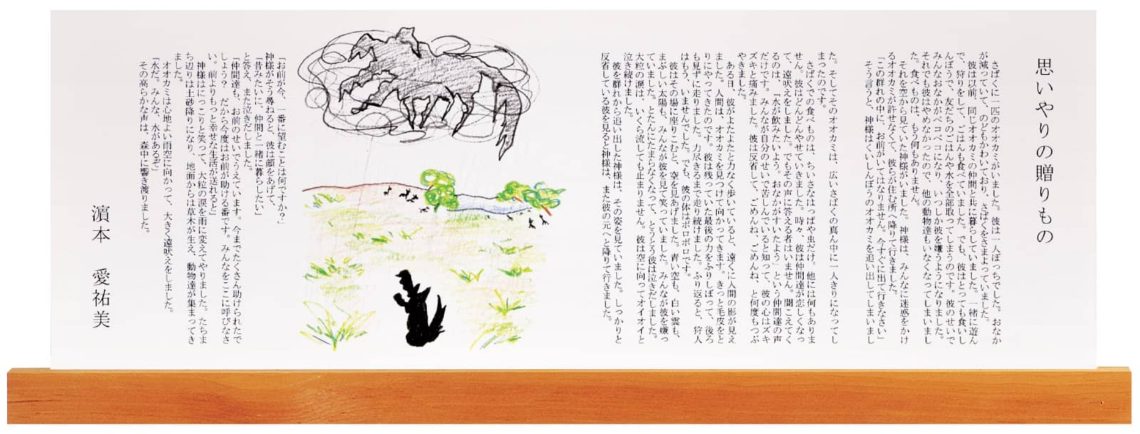 思いやりの贈りもの
さばくに一匹のオオカミがいました。彼は一人ぼっちでした。おなか
が減っていて、のどもかわいており、さばくをさまよっていました。
彼は以前、同じオオカミの仲間と共に暮らしていました。一緒に遊ん
で、狩りをして、ごはんも食べていました。でも、彼はとっても食いし
んぼうで、友だちのごはんや水を全部取ってしまうのです。彼のせいで
みんなおなかがペコペコになり、いつしか彼を嫌うようになりました。
それでも彼はやめなかったので、他の動物達もいなくなってしまいまし
た。食べものは、もう何もありません。
それを空から見ていた神様がいました。神様は、みんなに迷惑をかけ
るオオカミが許せなくて、彼らが住む所へ降りて行きました。
「この群れの中に、お前がいてはなりません。今すぐに出て行きなさい」
そう言うと、神様はくいしんぼうのオオカミを追い出してしまいまし
た。そしてそのオオカミは、広いさばくの真ん中に一人きりになってし
まったのです。
さばくでの食べものは、ちいさなはっぱや虫だけ。他には何もありま
せん。彼はどんどんやせていきました。時々、彼は仲間達が恋しくなっ
て、遠吠えをしました。でもその声に答える者はいません。聞こえてく
るのは、「水が飲みたいよう、おなかがすいたよう」という仲間達の声
だけです。みんなが自分のせいで苦しんでいると知って、彼の心はズキ
ズキと痛みました。彼は反省して、ごめんね、ごめんね、と何度もつぶ
やきました。
ある日、彼がよたよたと力なく歩いていると、遠くに人間の影が見え
ました。人間は、オオカミを見つけて向かってきます。きっと毛皮をと
りにやってきたのです。彼は残っていた最後の力をふりしぼって、後ろ
も見ずに走りました。力尽きるまで走り続けました。ふり返ると、狩人
はもう、いませんでした。でも、彼の体はボロボロです。
彼はその場に座りこむと、空を見あげました。青い空も、白い雲も、
まぶしい太陽も、みんなが彼を見て笑っていました。みんなが彼を嫌っ
ていました。とたんにたまらなくなって、とうとう彼は泣きだしました。
大粒の涙は、いくら流しても止まりません。彼は空に向かってオイオイと
泣き続けました。
彼を群れから追い出した神様は、その姿を見ていました。しっかりと
反省している彼を見ると神様は、また彼の元へと降りて行きました。
「お前が今、一番に望むことは何ですか？」
神様がそう尋ねると、彼は顔をあげて、
「昔みたいに、仲間と一緒に暮らしたい」
と答え、また泣きだしました。
「仲間達も、お前のせいでうえています。今までたくさん助けられたで
しょう？　だから今度はお前が助ける番です。みんなをここに呼びなさ
い。前よりもっと幸せな生活が送れると」
神様はにっこりと笑って、大粒の涙を雨に変えてやりました。たちま
ち辺りは土砂降りになり、地面からは草木が生え、動物達が集まってき
ました。
オオカミは心地よい雨空に向かって、大きく遠吠えをしました。
「水だ、みんな、水があるぞ」
その高らかな声は、森中に響き渡りました。
濱本　愛祐美